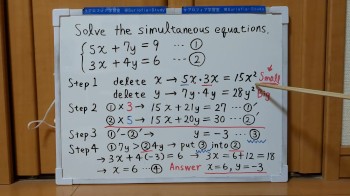 Solve the simultaneous equations.
5x + 7y = 9 ⋯ ①
3x + 4y = 6 ⋯ ②
Step 1 delete x → 5x·3x = 15x² Small
delete y → 7y·4y = 28y² Big
Step 2 ① × 3 → 15x + 21y = 27 ⋯ ①′
② × 5 → 15x + 20y = 30 ⋯ ②′
Step 3 ①′ - ②′ → y = -3 ⋯ ③
Step 4 ① 7y > ② 4y → put ③ into ②
→ 3x + 4(-3) = 6 → 3x = 6 + 12 = 18
→ x = 6 ⋯ ④ Answer x = 6, y = -3